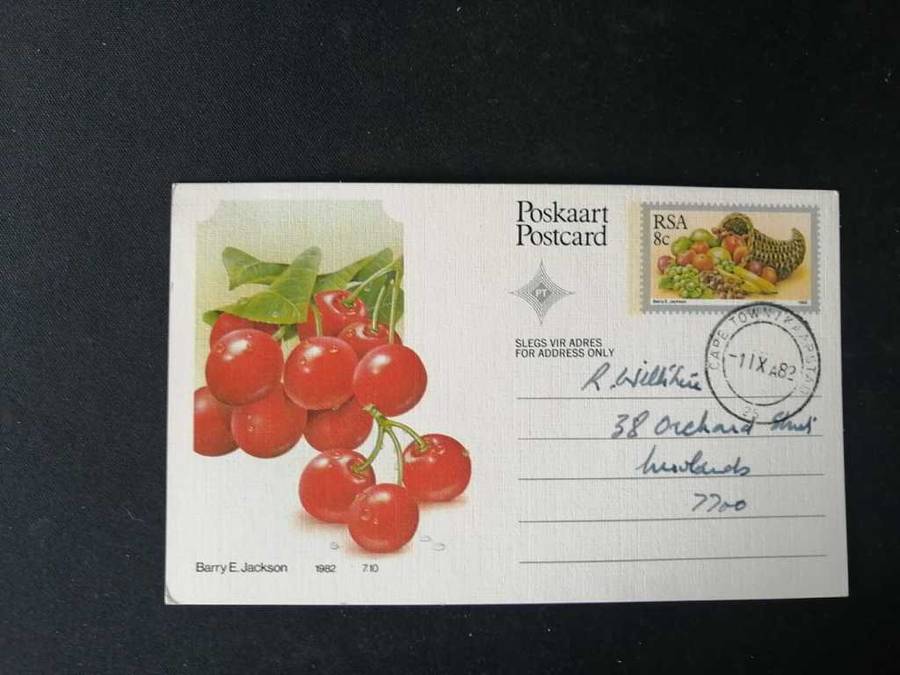 Poskaart
Postcard
RSA
8c
Barry E. Jackson 1982
PT
CAPE TOWN / KAAPSTAD
-1 IX A82
25
SLEGS VIR ADRES
FOR ADDRESS ONLY
R.
38 Orchard Street
Newlands
7700
Barry E. Jackson 1982 7.10